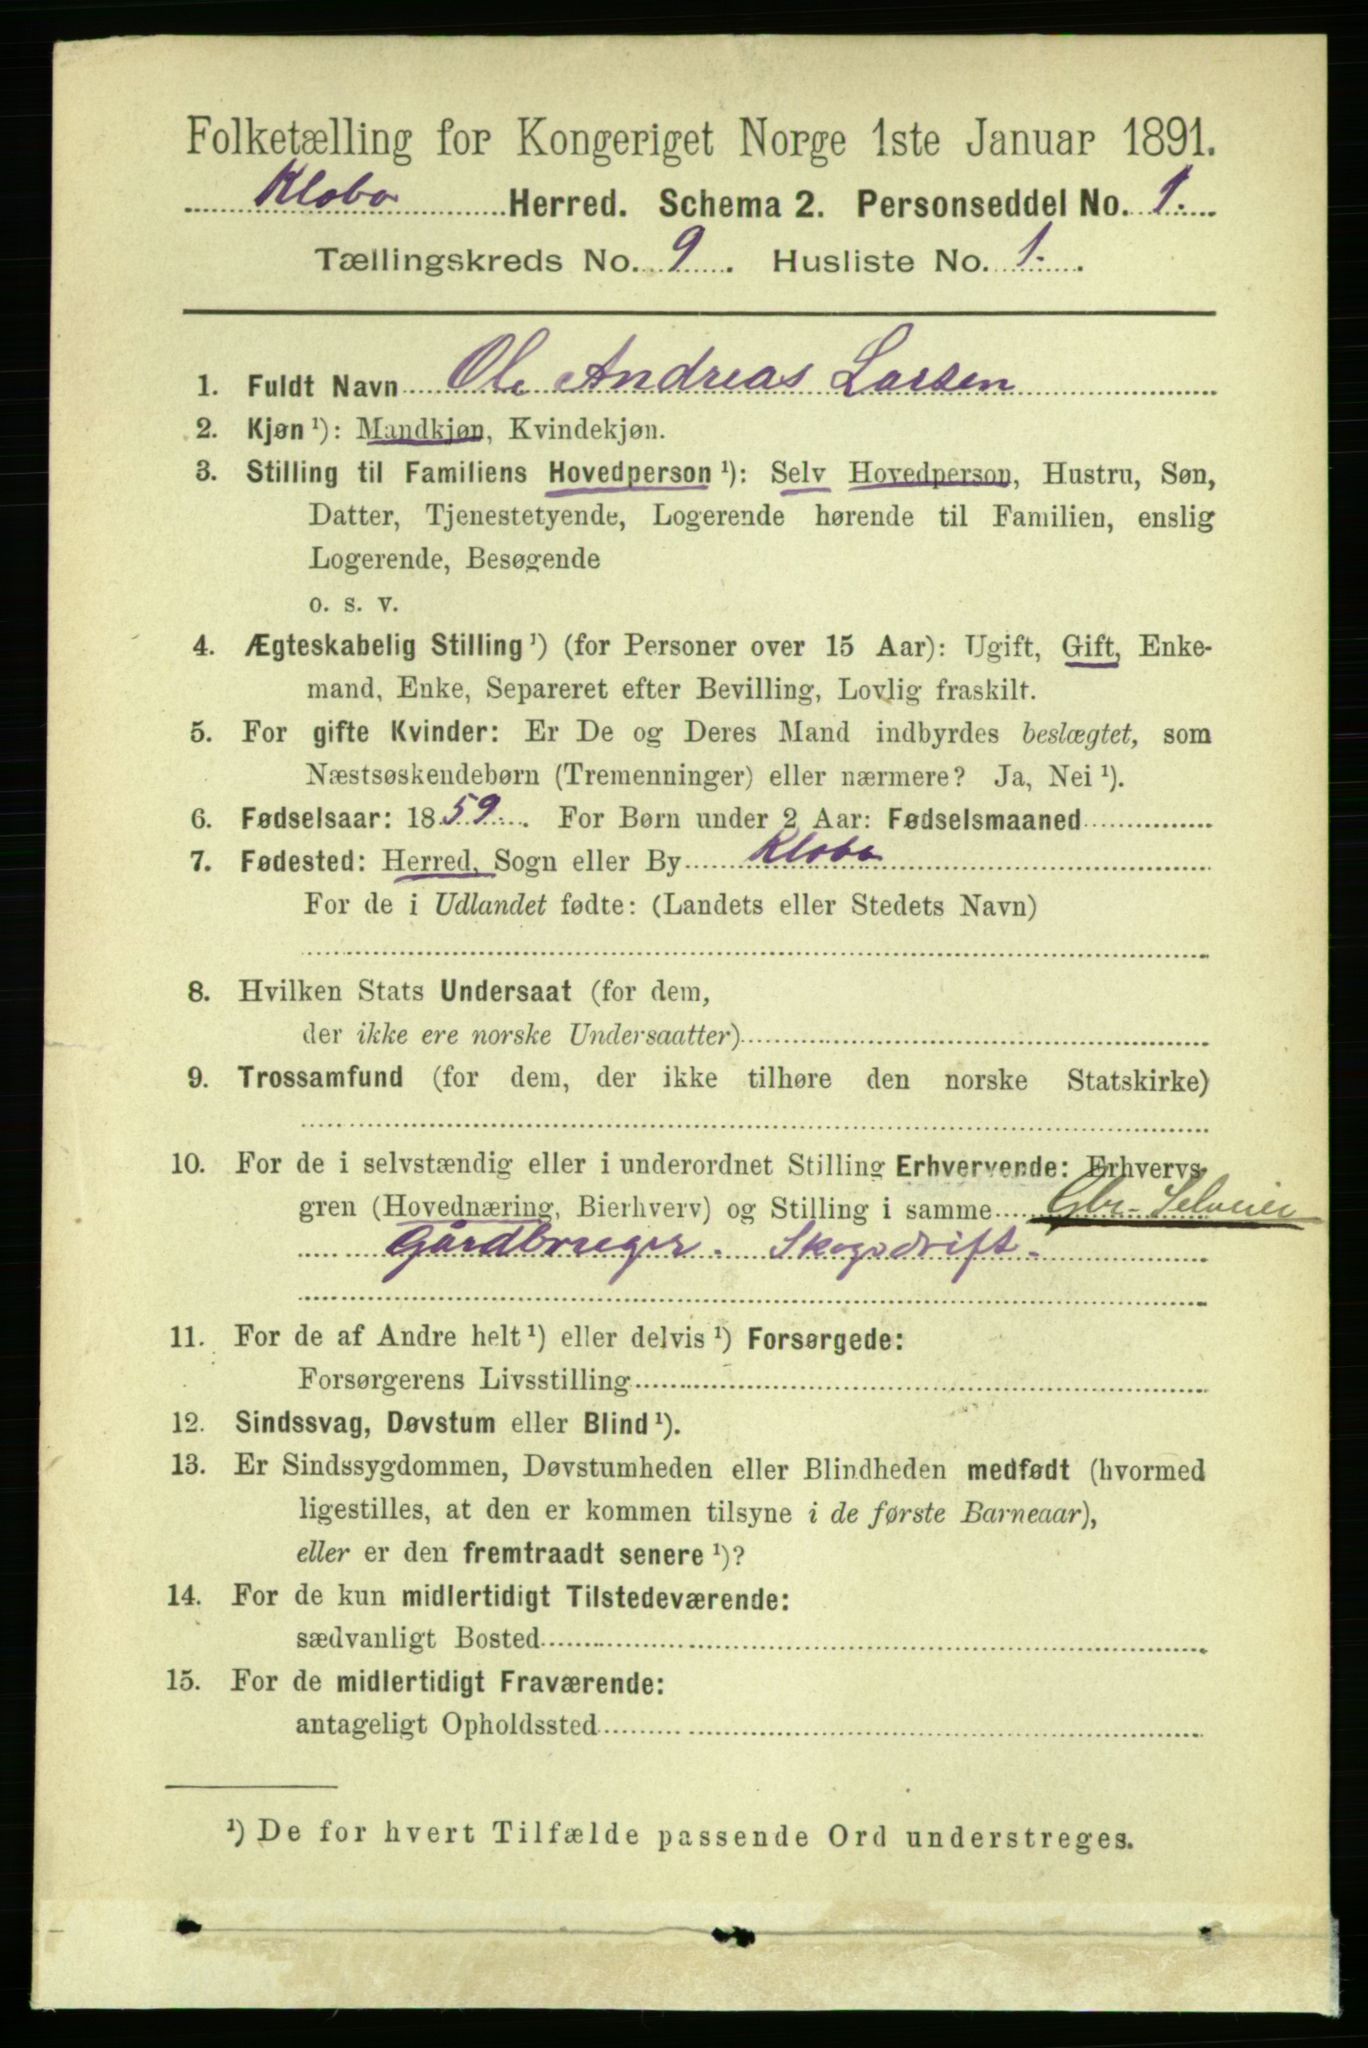 Folketælling for Kongeriget Norge 1ste Januar 1891.
Klæbo Herred. Schema 2. Personseddel No. 1.
Tællingskreds No. 9. Husliste No. 1.
1. Fuldt Navn Ole Andreas Larsen
2. Kjøn ¹): Mandkjøn, Kvindekjøn.
3. Stilling til Familiens Hovedperson ¹): Selv Hovedperson, Hustru, Søn,
Datter, Tjenestetyende, Logerende hørende til Familien, enslig
Logerende, Besøgende
o. s. v.
4. Ægteskabelig Stilling ¹) (for Personer over 15 Aar): Ugift, Gift, Enke-
mand, Enke, Separeret efter Bevilling, Lovlig fraskilt.
5. For gifte Kvinder: Er De og Deres Mand indbyrdes beslægtet, som
Næstsøskendebørn (Tremenninger) eller nærmere? Ja, Nei ¹).
6. Fødselsaar: 1859. For Børn under 2 Aar: Fødselsmaaned
7. Fødested: Herred, Sogn eller By Klæbo
For de i Udlandet fødte: (Landets eller Stedets Navn)
8. Hvilken Stats Undersaat (for dem,
der ikke ere norske Undersaatter)
9. Trossamfund (for dem, der ikke tilhøre den norske Statskirke)
10. For de i selvstændig eller i underordnet Stilling Erhvervende: Erhvervs-
gren (Hovednæring, Bierhverv) og Stilling i samme Gbr. Selveier
Gårdbruger. Skogsdrift.
11. For de af Andre helt ¹) eller delvis ¹) Forsørgede:
Forsørgerens Livsstilling
12. Sindssvag, Døvstum eller Blind ¹).
13. Er Sindssygdommen, Døvstumheden eller Blindheden medfødt (hvormed
ligestilles, at den er kommen tilsyne i de første Barneaar),
eller er den fremtraadt senere ¹)?
14. For de kun midlertidigt Tilstedeværende:
sædvanligt Bosted
15. For de midlertidigt Fraværende:
antageligt Opholdssted
¹) De for hvert Tilfælde passende Ord understreges.